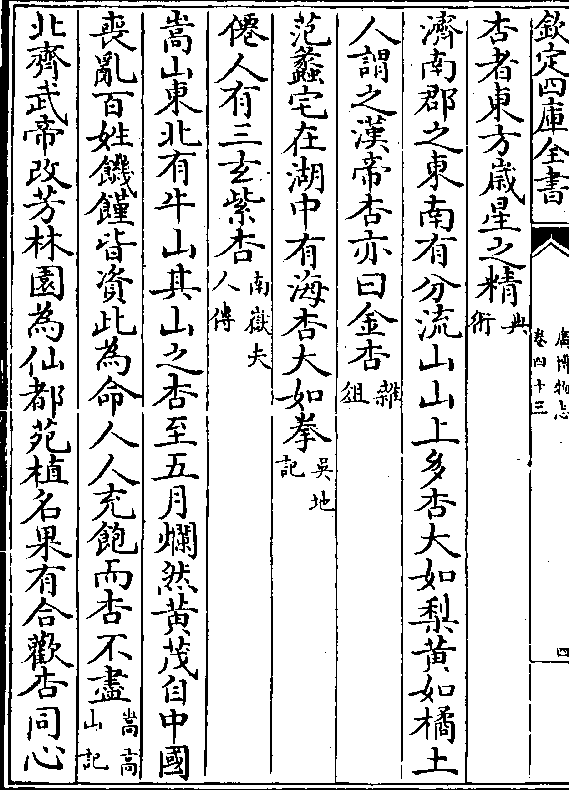 欽定四庫全書
廣博物志
卷四十三
四
杏者東方歲星之精典術
濟南郡之東南有分流山山上多杏大如梨黃如橘土
人謂之漢帝杏亦曰金杏雜俎
范蠡宅在湖中有海杏大如拳吳地記
僊人有三𤣥紫杏南嶽夫人傳
嵩山東北有牛山其山之杏至五月爛然黃茂自中國
喪亂百姓饑饉皆資此為命人人充飽而杏不盡嵩高山記
北齊武帝改芳林園為仙都苑植名果有合歡杏同心